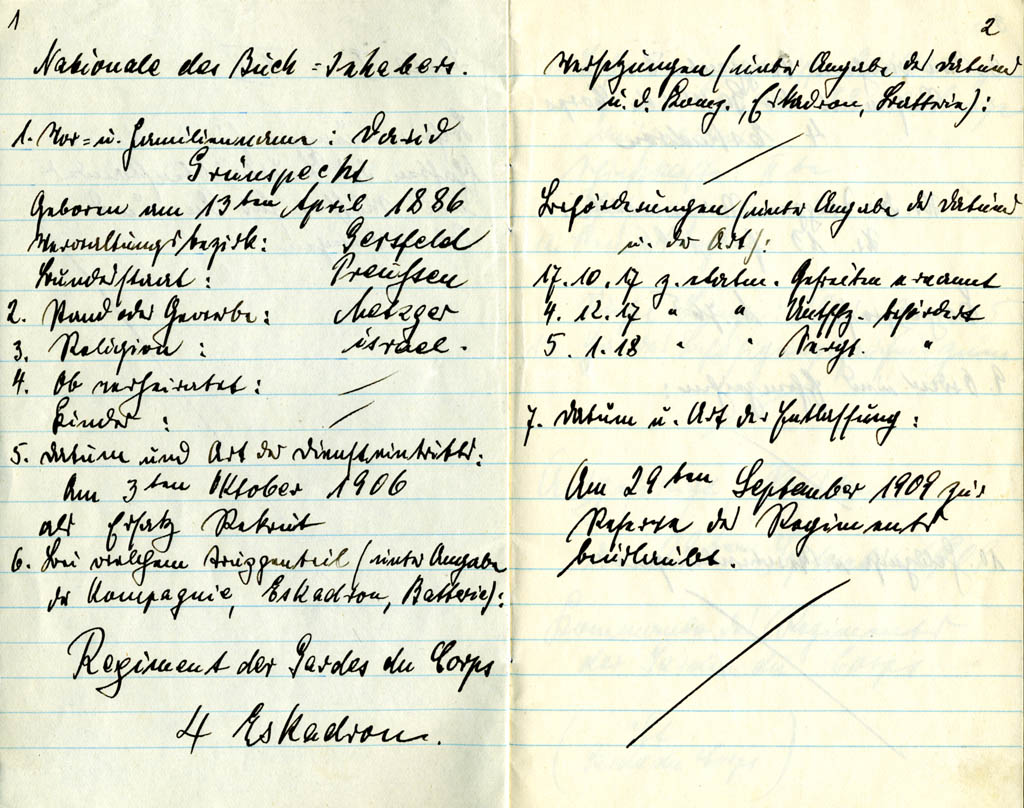 1
Nationale des Buch-Inhabers.
1. Vor- u. Familienname: David
Grünspecht
Geboren am 13ten April 1886
Verwaltungsbezirk: Gersfeld
Bundesstaat: Preußen
2. Stand oder Gewerbe: Metzger
3. Religion: israel.
4. Ob verheiratet: /
Kinder: /
5. Datum und Art des Diensteintritts:
Am 3ten Oktober 1906
als Ersatz Rekrut
6. Bei welchem Truppenteil (unter Angabe
der Kompagnie, Eskadron, Batterie):
Regiment der Gardes du Corps
4 Eskadron.
2
Versetzungen (unter Angabe des Datums
u. d. Komp., Eskadron, Batterie):
Beförderungen (unter Angabe des Datums
u. der Art):
17.10.17 z. etatm. Gefreiten ernannt
4. 12.17 " " Untffz. befördert
5. 1.18 " " Sergt. "
7. Datum u. Art der Entlassung:
Am 29ten September 1909 zur
Reserve des Regiments
beurlaubt.